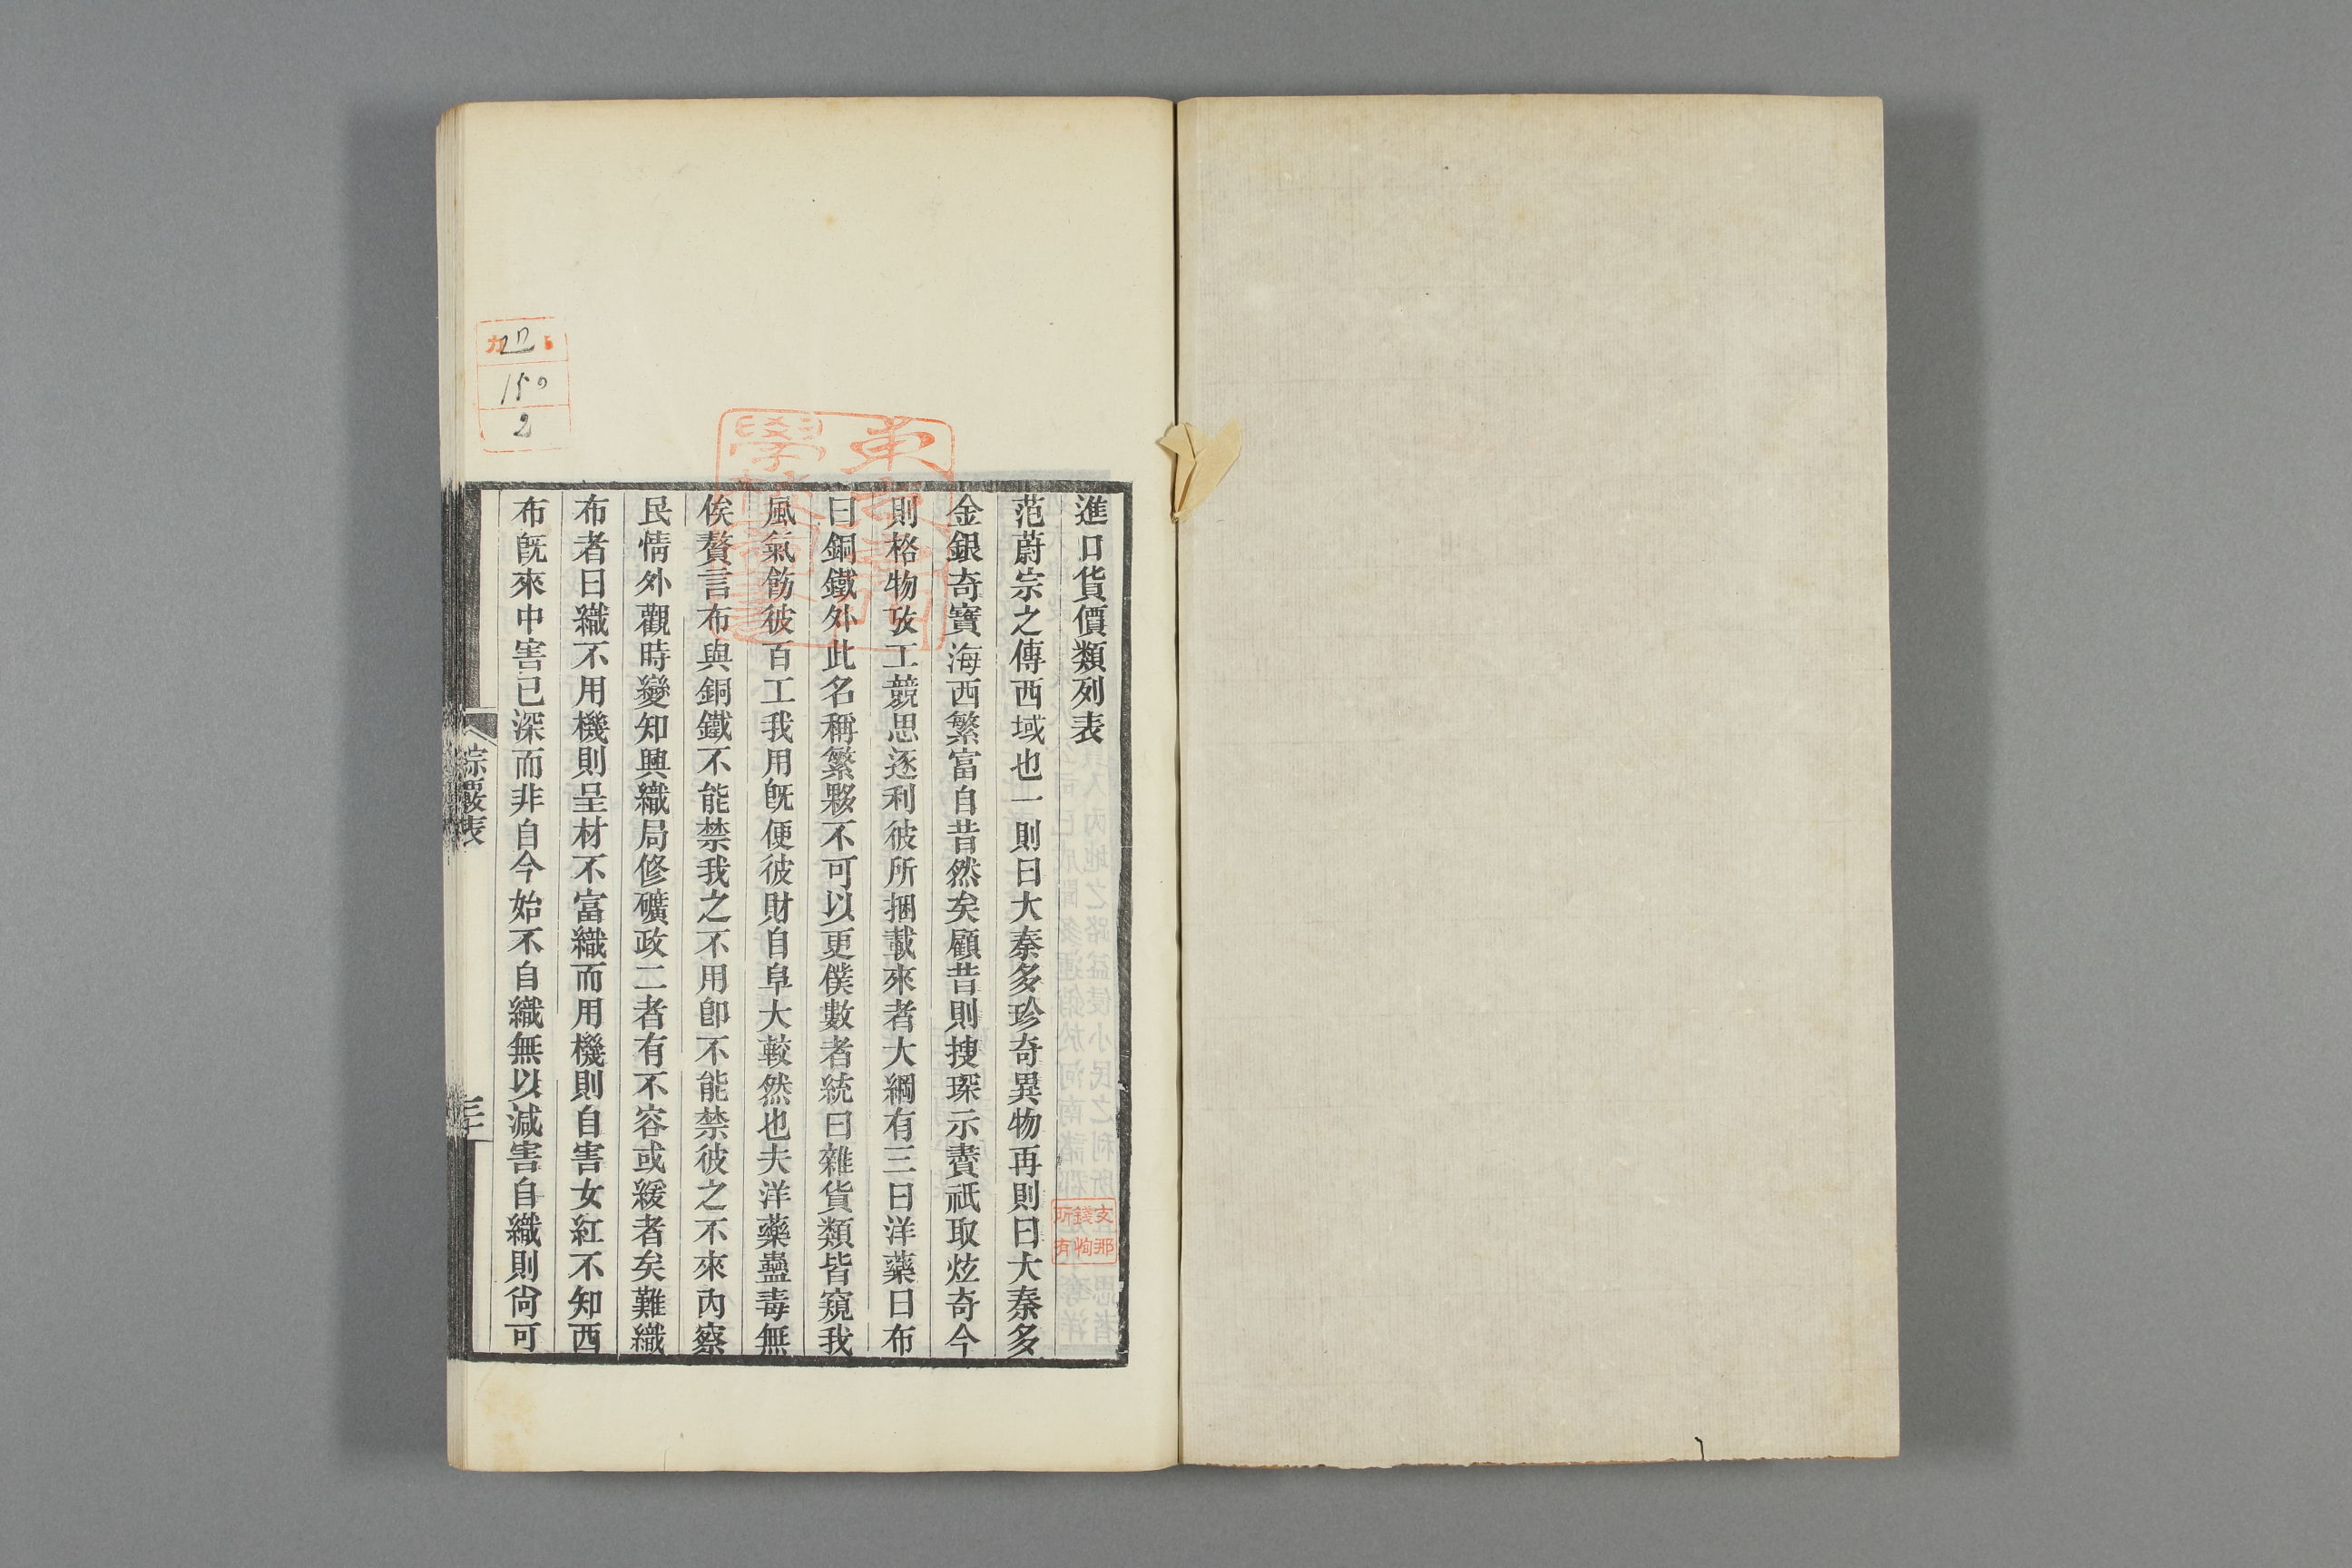 進口貨價類列表
范蔚宗之傳西域也一則曰大秦多珍奇異物再則曰大秦多
金銀奇寶海西繁富自昔然矣顧昔則捜琛示賚祇取炫奇今
則格物攷工競思逐利彼所捆載來者大綱有三曰洋藥曰布
曰銅鐵外此名稱繁夥不可以更僕數者統曰雜貨類皆窺我
風氣飭彼百工我用旣便彼財自阜大較然也夫洋藥蠱毒無
俟贅言布與銅鐵不能禁我之不用卽不能禁彼之不來內察
民情外觀時變知興織局修礦政二者有不容或緩者矣難織
布者曰織不用機則呈材不富織而用機則自害女紅不知西
布旣來中害已深而非自今始不自織無以減害自織則尙可
綜覈表
支那
錢恂
所有
150
2